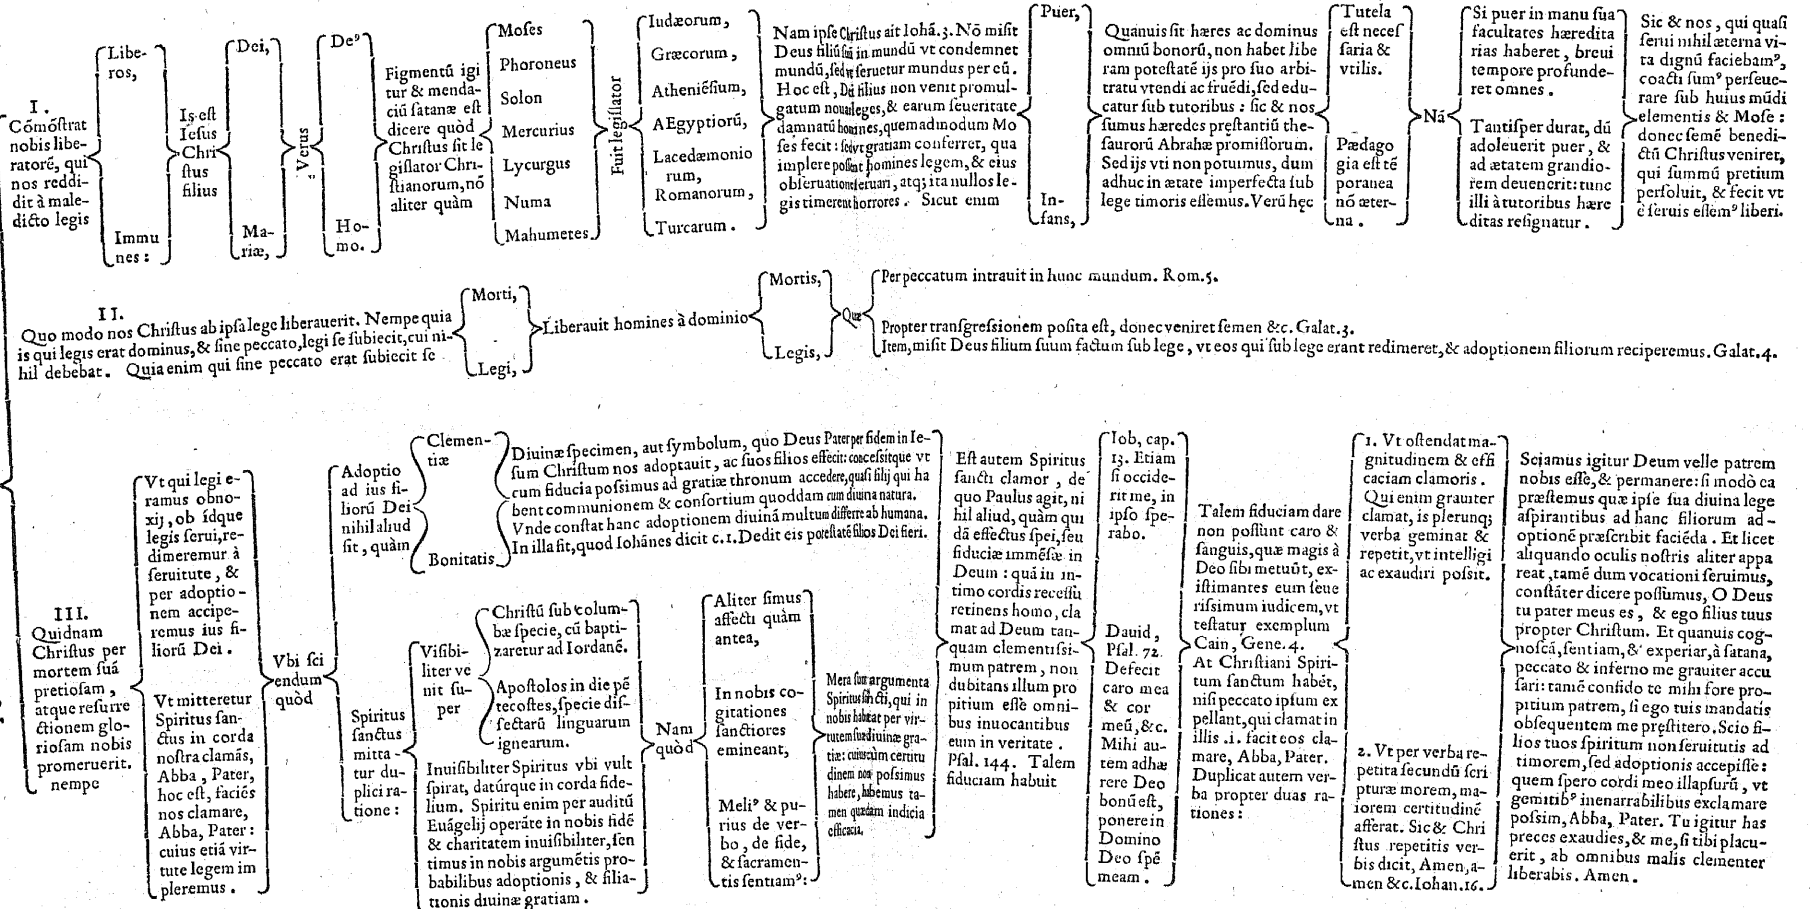 I.
Cómõſtrat
nobis libe-
ratorẽ, qui
nos reddi-
dit à male-
dicto legis
Libe-
ros,
Immu
nes:
Is eſt
Ieſus
Chri
ſtus
filius
Dei,
Ma-
riæ,
Verus
Deꝰ
Ho-
mo.
Figmentũ igi
tur & menda-
ciũ ſatanæ eſt
dicere quòd
Chriſtus ſit le
giſlator Chri-
ſtianorum, nõ
aliter quàm
Moſes
Phoroneus
Solon
Mercurius
Lycurgus
Numa
Mahumetes
Fuit legiſlator
Iudæorum,
Græcorum,
Atheniẽſium,
AEgyptiorũ,
Lacedæmonio
rum,
Romanorum,
Turcarum.
Nam ipſe Chriſtus ait Iohã.3. Nõ miſit
Deus filiũ ſuũ in mundũ vt condemnet
mundũ, ſed vt ſeruetur mundus per eũ.
Hoc eſt, Dei filius non venit promul-
gatum nouas leges, & earum ſeueritate
damnatũ homines, quemadmodum Mo
ſes fecit: ſed vt gratiam conferret, qua
implere poſſent homines legem, & eius
obſeruationẽ ſeruari, atqꝫ ita nullos le-
gis timerent horrores. Sicut enim
Puer,
In-
fans,
Quãnuis ſit hæres ac dominus
omniũ bonorũ, non habet libe
ram poteſtatẽ ijs pro ſuo arbi-
tratu vtendi ac fruẽdi, ſed edu-
catur ſub tutoribus: ſic & nos
ſumus hæredes pręſtantiũ the-
ſaurorũ Abrahæ promiſſorum.
Sed ijs vti non potuimus, dum
adhuc in ætate imperfecta ſub
lege timoris eſſemus. Verũ hęc
Tutela
eſt neceſ
ſaria &
vtilis.
Pædago
gia eſt tẽ
poranea
nõ æter-
na.
Nã
Si puer in manu ſua
facultates hæredita
rias haberet, breui
tempore profunde-
ret omnes.
Tantiſper durat, dũ
adoleuerit puer, &
ad ætatem grandio-
rem deuenerit: tunc
illi à tutoribus hære
ditas reſignatur.
Sic & nos, qui quaſi
ſerui nihil æterna vi-
ta dignũ faciebamꝰ,
coacti ſumꝰ perſeue-
rare ſub huius mũdi
elementis & Moſe:
donec ſemẽ benedi-
ctũ Chriſtus veniret,
qui ſummũ pretium
perſoluit, & fecit vt
è ſeruis eſſemꝰ liberi.
II.
Quo modo nos Chriſtus ab ipſa lege liberauerit. Nempe quia
is qui legis erat dominus, & ſine peccato, legi ſe ſubiecit, cui ni-
hil debebat. Quia enim qui ſine peccato erat ſubiecit ſe
Morti,
Legi,
Liberauit homines à dominio
Mortis,
Legis,
Quæ
Per peccatum intrauit in hunc mundum. Rom.5.
Propter tranſgreſsionem poſita eſt, donec veniret ſemen &c. Galat.3.
Item, miſit Deus filium ſuum factum ſub lege, vt eos qui ſub lege erant redimeret, & adoptionem filiorum reciperemus. Galat.4.
III.
Quidnam
Chriſtus per
mortem ſuã
pretioſam,
atque reſurre
ctionem glo-
rioſam nobis
promeruerit.
nempe
Vt qui legi e-
ramus obno-
xij, ob idque
legis ſerui, re-
dimeremur à
ſeruitute, &
per adoptio-
nem accipe-
remus ius fi-
liorũ Dei.
Vt mitteretur
Spiritus ſan-
ctus in corda
noſtra clamãs,
Abba, Pater,
hoc eſt, faciẽs
nos clamare,
Abba, Pater:
cuius etiã vir-
tute legem im
pleremus.
Vbi ſci
endum
quòd
Adoptio
ad ius fi-
liorũ Dei
nihil aliud
ſit, quàm
Clemen-
tiæ
Bonitatis
Diuinæ ſpecimen, aut ſymbolum, quo Deus Pater per fidem in Ie-
ſum Chriſtum nos adoptauit, ac ſuos filios effecit: conceſsitque vt
cum fiducia poſsimus ad gratiæ thronum accedere, quaſi filij qui ha
bent communionem & conſortium quoddam cum diuina natura.
Vnde conſtat hanc adoptionem diuinã multum differre ab humana.
In illa fit, quod Iohãnes dicit c.1. Dedit eis poteſtatẽ filios Dei fieri.
Spiritus
ſanctus
mitta-
tur du-
plici ra-
tione:
Viſibi-
liter ve
nit ſu-
per
Chriſtũ ſub colum-
bæ ſpecie, cũ bapti-
zaretur ad Iordanẽ.
Apoſtolos in die pẽ
tecoſtes, ſpecie diſ-
ſectarũ linguarum
ignearum.
Inuiſibiliter Spiritus vbi vult
ſpirat, datúrque in corda fide-
lium. Spiritu enim per auditũ
Euãgelij operãte in nobis fidẽ
& charitatem inuiſibiliter, ſen
timus in nobis argumẽtis pro-
babilibus adoptionis, & filia-
tionis diuinæ gratiam.
Nam
quòd
Aliter ſimus
affecti quàm
antea,
In nobis co-
gitationes
ſanctiores
emineant,
Meliꝰ & pu-
rius de ver-
bo, de fide,
& ſacramen-
tis ſentiamꝰ:
Mera ſunt argumenta
Spiritus ſancti, qui in
nobis habitat per vir-
tutem ſuæ diuinæ gra-
tiæ: cuius cùm certitu
dinem non poſsimus
habere, habemus ta-
men quædam indicia
efficacia.
Eſt autem Spiritus
ſancti clamor, de
quo Paulus agit, ni
hil aliud, quàm qui
dã effectus ſpei, ſeu
fiduciæ immẽſæ in
Deum: quã in in-
timo cordis receſſu
retinens homo, cla
mat ad Deum tan-
quam clementiſsi-
mum patrem, non
dubitans illum pro
pitium eſſe omni-
bus inuocantibus
eum in veritate.
Pſal. 144. Talem
fiduciam habuit
Iob, cap.
13. Etiam
ſi occide-
rit me, in
ipſo ſpe-
rabo.
Dauid,
Pſal. 72.
Defecit
caro mea
& cor
meũ, &c.
Mihi au-
tem adhæ
rere Deo
bonũ eſt,
ponere in
Domino
Deo ſpẽ
meam.
Talem fiduciam dare
non poſſunt caro &
ſanguis, quæ magis à
Deo ſibi metuũt, ex-
iſtimantes eum ſeue
riſsimum iudicem, vt
teſtatur exemplum
Cain, Gene. 4.
At Chriſtiani Spiri-
tum ſanctum habẽt,
niſi peccato ipſum ex
pellant, qui clamat in
illis .i. facit eos cla-
mare, Abba, Pater.
Duplicat autem ver-
ba propter duas ra-
tiones:
1. Vt oſtendat ma-
gnitudinem & effi
caciam clamoris.
Qui enim grauiter
clamat, is plerunqꝫ
verba geminat &
repetit, vt intelligi
ac exaudiri poſsit.
2. Vt per verba re-
petita ſecundũ ſcri
pturæ morem, ma-
iorem certitudinẽ
afferat. Sic & Chri
ſtus repetitis ver-
bis dicit, Amen, a-
men &c. Iohan.16.
Sciamus igitur Deum velle patrem
nobis eſſe, & permanere: ſi modò ea
præſtemus quæ ipſe ſua diuina lege
aſpirantibus ad hanc filiorum ad-
optionẽ præſcribit faciẽda. Et licet
aliquando oculis noſtris aliter appa
reat, tamẽ dum vocationi ſeruimus,
conſtãter dicere poſſumus, O Deus
tu pater meus es, & ego filius tuus
propter Chriſtum. Et quanuis cog-
noſcã, ſentiam, & experiar, à ſatana,
peccato & inferno me grauiter accu
ſari: tamẽ confido te mihi fore pro-
pitium patrem, ſi ego tuis mandatis
obſequentem me pręſtitero. Scio fi-
lios tuos ſpiritum non ſeruitutis ad
timorem, ſed adoptionis accepiſſe:
quem ſpero cordi meo illapſurũ, vt
gemitibꝰ inenarrabilibus exclamare
poſsim, Abba, Pater. Tu igitur has
preces exaudies, & me, ſi tibi placu-
erit, ab omnibus malis clementer
liberabis. Amen.